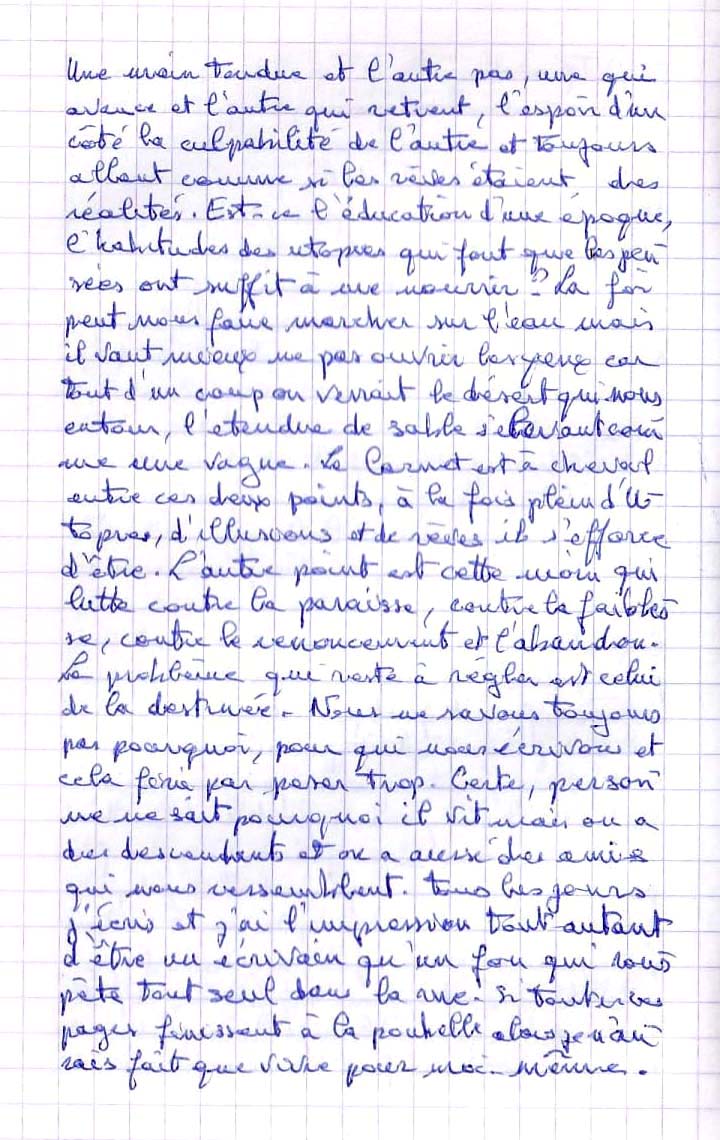 Une main tendue et l'autre pas, une qui
avance et l'autre qui retient, l'espoir d'un
côté la culpabilité de l'autre et toujours
allant comme si les rêves étaient des
réalités. Est-ce l'éducation d'une époque,
l'habitudes des utopies qui font que les pen
sées ont suffit à me nourrir ? La foi
peut nous faire marcher sur l'eau mais
il vaut mieux ne pas ouvrir les yeux car
tout d'un coup on verrait le désert qui nous
entour, l'etendue de sable s'elevant com
me une vague. Le Carnet est à cheval
entre ces deux points, à la fois plein d'U-
topies, d'illusions et de rêves il s'efforce
d'être. L'autre point est cette main qui
lutte contre la paraisse, contre la faibles
se, contre le renoncement et l'abandon.
Le problème qui reste à régler est celui
de la destinée. Nous ne savons toujours
pas pourquoi, pour qui nous écrivons et
cela fini par peser trop. Certe, person
ne ne sait pourquoi il vit mais on a
des descendants et on a aussi des amis
qui nous ressemblent. Tous les jours
j'écris et j'ai l'impression tout autant
d'être un écrivain qu'un fou qui rous
pète tout seul dans la rue. Si toutes ces
pages finissent à la poubelle alors je n'au
rais fait que vivre pour moi-même.